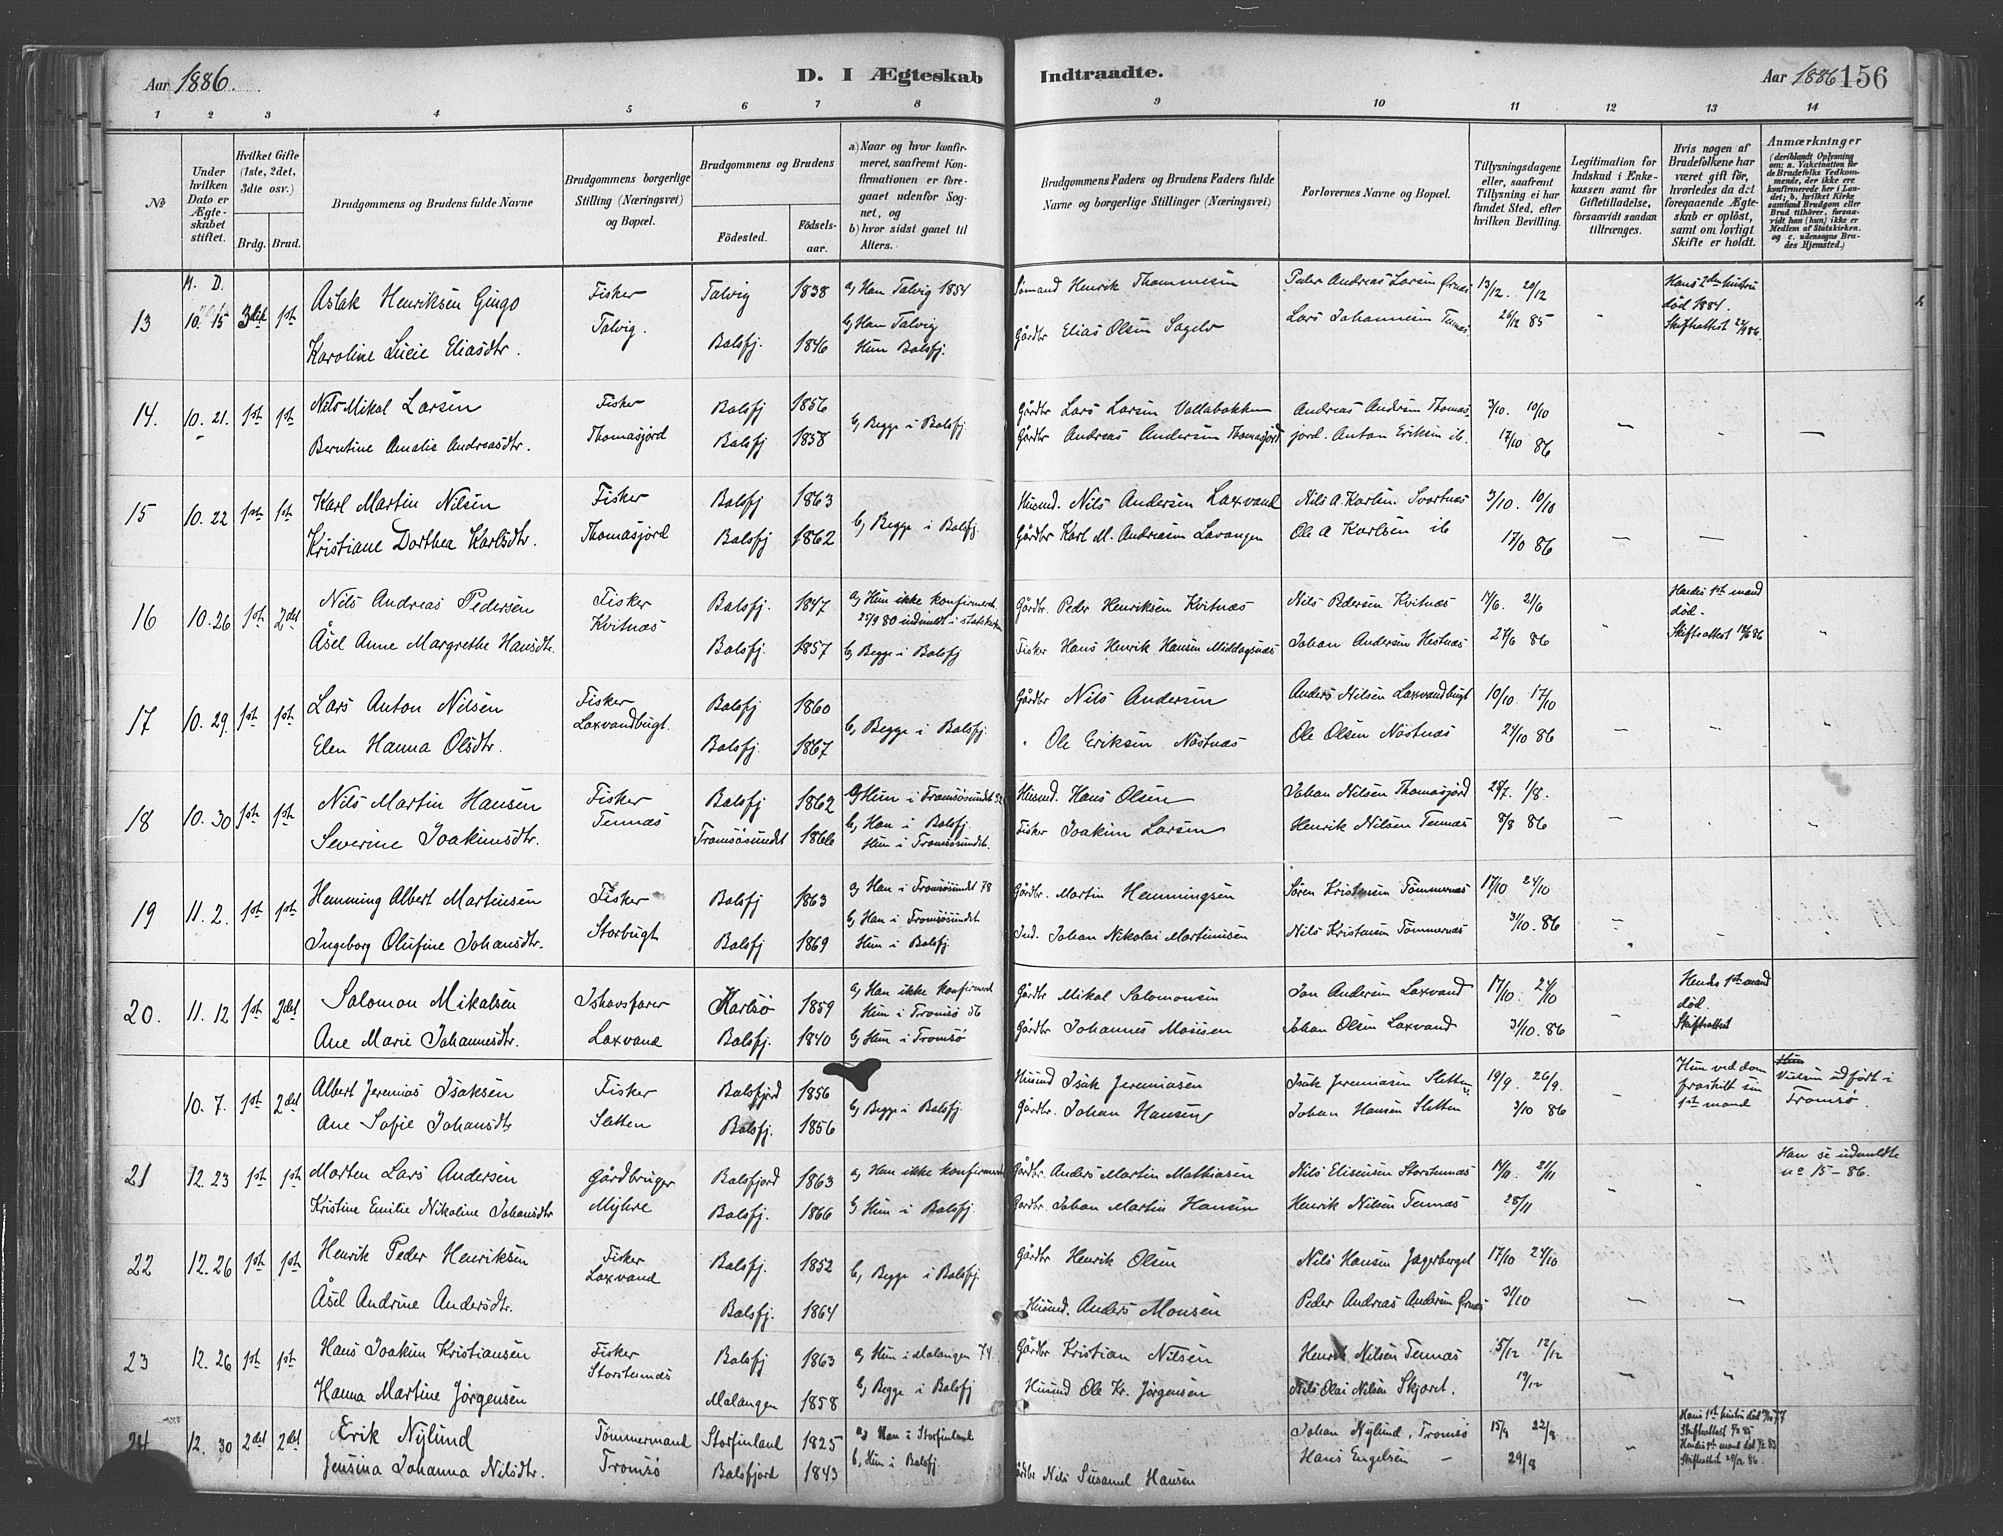 Aar 1886.
D. I Ægteskab Indtraadte.
Aar 1886 156
1 2 3 4 5 6 7 8 9 10 11 12 13 14
No
Under hvilken Dato er Ægteskabet stiftet.
Hvilket Gifte (1ste, 2det, 3die osv.)
Brdg. Brud.
Brudgommens og Brudens fulde Navne
Brudgommens borgerlige Stilling (Næringsvei) og Bopæl.
Brudgommens og Brudens
Fødested. Fødselsaar.
a) Naar og hvor konfirmeret, saafremt Konfirmationen er foregaaet udenfor Sognet, og
b) hvor sidst gaaet til Alters.
Brudgommens Faders og Brudens Faders fulde Navne og borgerlige Stillinger (Næringsvei)
Forlovernes Navne og Bopæl.
Tillysningsdagene eller, saafremt Tillysning ei har fundet Sted, efter hvilken Bevilling.
Legitimation for Indskud i Enkekassen samt for Giftetilladelse, forsaavidt saadan tiltrænges.
Hvis nogen af Brudefolkene har været gift før, hvorledes da det foregaaende Ægteskab er opløst, samt om lovligt Skifte er holdt.
Anmærkninger
(deriblandt Oplysning om: a. Vakcination for de Brudefolks Vedkommende, der ikke ere konfirmerede her i Landet; b. hvilket Kirkesamfund Brudgom eller Brud tilhører, forsaavidt han (hun) ikke er Medlem af Statskirken, og c. udensogns Brudes Hjemsted.)
M. D.
13 10. 15 3die 1st Aslak Henriksen Gingo Fisker Talvig 1838 a, Han Talvig 1854 Sømand Henrik Thommesen Peder Andreas Larsen Ørnæs 13/12. 20/12 Hans 2den hustru
Talvig. b, Han Talvig Lars Johannesen Tennæs 26/12 85 " død 1884.
Karoline Lucie Eliasdtr. Balsfj. 1846 Hun Balsfj. Gårdbr Elias Olsen Sagelv Skifteattest
14. 10. 21. 1st 1st Nils Mikal Larsen Fisker Balsfj 1856 b, Begge i Balsfj. Gårdbr Lars Larsen Vallabakken Andreas Andersen Thomas- 3/10. 10/10
Berntine Amalie Andreasdtr. Thomasjord Balsfj 1858 Gårdbr Andreas Andersen Thomasjord jord. Anton Eriksen ib. 17/10 86 — — —
15 10. 22 1st 1st Karl Martin Nilsen Fisker Balsfj 1863 b, Begge i Balsfj. Husmd. Nils Andersen Laxvand Nils A. Karlsen Svartnæs 3/10. 10/10
Kristiane Dorthea Karlsdtr. Thomasjord Balsfj 1862 Gårdbr Karl M. Andreasen Lavangen Ole A Karlsen ib 17/10 86 — —
16 10. 26 1st 2det Nils Andreas Pedersen Fisker Balsfj. 1847 a, Hun ikke konfirmeret Gårdbr. Peder Henriksen Kvitnæs Nils Pedersen Kvitnæs 14/6. 21/6 Hendes 1st mand
Kvitnæs 25/9 80 indmeldt i statskirken død.
Åsel Anne Margrethe Hansdtr. Balsfj. 1857 b, Begge i Balsfj Fisker Hans Henrik Hansen Middagsnæs Johan Andersen Hestnæs 27/6 86 " Skifteattest "
17 10. 29. 1st 1st Lars Anton Nilsen Fisker Balsfj 1860 b, Begge i Balsfj. Gårdbr Nils Andersen Anders Nilsen Laxvandbugt 10/10 17/10
Elen Hanna Olsdtr. Laxvandbugt. Balsfj. 1867 " Ole Eriksen Nøstnæs Ole Olsen Nøstnæs 24/10 86 — " "
18 10. 30 1st 1st Nils Martin Hansen Fisker Balsfj 1862 a, Hun i Tromsøsundet 82 Husmd. Hans Olsen Johan Nilsen Thomasjord 1/8.
Tennæs b, Han i Balsfj.
Severine Joakimsdtr. Tromsøsundet 1866 Hun i Tromsøsundet. Fisker Joakim Larsen Henrik Nilsen Tennæs 8/8 86 — " "
19 11. 2. 1st 1st Hemming Albert Martinsen Fisker Balsfj 1863 a, Han i Tromsøsundet 78 Gårdbr. Martin Hemmingsen Søren Kristensen Tømmernæs 17/10 24/10
Storbugt b, Han i Tromsøsundet
Ingeborg Olufine Johansdtr. Balsfj 1869 Hun i Balsfj Ind. Johan Nikolai Martinusen Nils Kristensen Tømmernæs 31/10. 86 " " "
20. 11. 12 1st 2det Salomon Mikalsen Ishavsfarer Karlsø 1859 a, Han ikke konfirmeret Gårdbr Mikal Salomonsen Jan Andersen Laxvand 17/10. 24/10 Hendes 1st mand
Hun i Tromsø 56 død.
Ane Marie Johannesdtr. Laxvand Balsfj. 1840 b, Hun i Tromsø Gårdbr Johannes Mosisen Johan Olsen Laxvand 31/10. 86 " Skifteattest
10. 7. 1st 2det Albert Jeremias Isaksen Fisker Balsfjord 1856 b, Begge i Balsfj. Husmd Isak Jeremiasen Isak Jeremiasen Sletten 19/9. 26/9. Hun ved dom Hun
fraskilt sin Vielsen udført i
Ane Sofie Johansdtr Sletten Balsfj. 1856 Gårdbr. Johan Hansen Johan Hansen Sletten 3/10 86 — 1st mand Tromsø.
21 12. 23 1st 1st Morten Lars Andersen Gårdbruger Balsfjord 1863 a, Hun ikke konfirmeret Gårdbr. Anders Martin Mathiasen Nils Elisensen Storstennæs 14/11. 21/11 Han se udmeldte
no 15 – 86.
Kristine Emilie Nikoline Johansdtr Myhre Balsfj. 1866 b, Hun i Balsfj. Gårdbr. Johan Martin Hansen Henrik Nilsen Tennæs 28/11 " "
22 12. 26 1st 1st Henrik Peder Henriksen Fisker Balsfj. 1852 b, Begge i Balsfj. Gårdbr Henrik Olsen Nils Hansen Jagerberget 17/10 24/10
Laxvand
Åsel Andrine Andersdtr. Balsfj. 1864 Husmd. Anders Monsen Peder Andreas Andersen Ørnæs 31/10 — —
23 12. 26 1st 1st Hans Joakim Kristiansen Fisker Balsfj 1863 a, Hun i Malangen 74. Gårdbr Kristian Nilsen Henrik Nilsen Tennæs 5/12 12/12
Storstennæs
Hanna Martine Jørgensen Malangen 1858 b, Begge i Balsfj Husmd Ole Kr. Jørgensen Nils Olai Nilsen Skjæret. 19/12 — "
24 12. 30 2det 2det Ærik Nylund Tømmermand Storfinland 1825 a, Han i Storfinland Johan Nylund, Tromsø 15/8 22/8 Hans 1st hustru død
Skifteattest
Jensina Johanna Nilsdtr. Tromsø Balsfjord 1843 b, Hun i Balsfj. Gårdbr Nils Susamel Hansen Hans Engelsen — 29/8 " Hendes 1st mand død
Skifteattest 29/12 86.